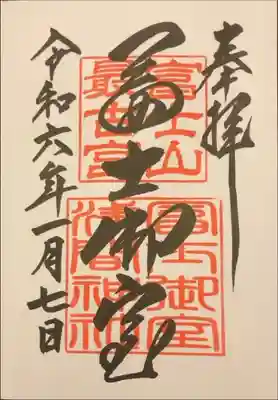 奉拝
冨士御室
令和六年一月七日
富士山
最古宮
冨士御室
浅間神社